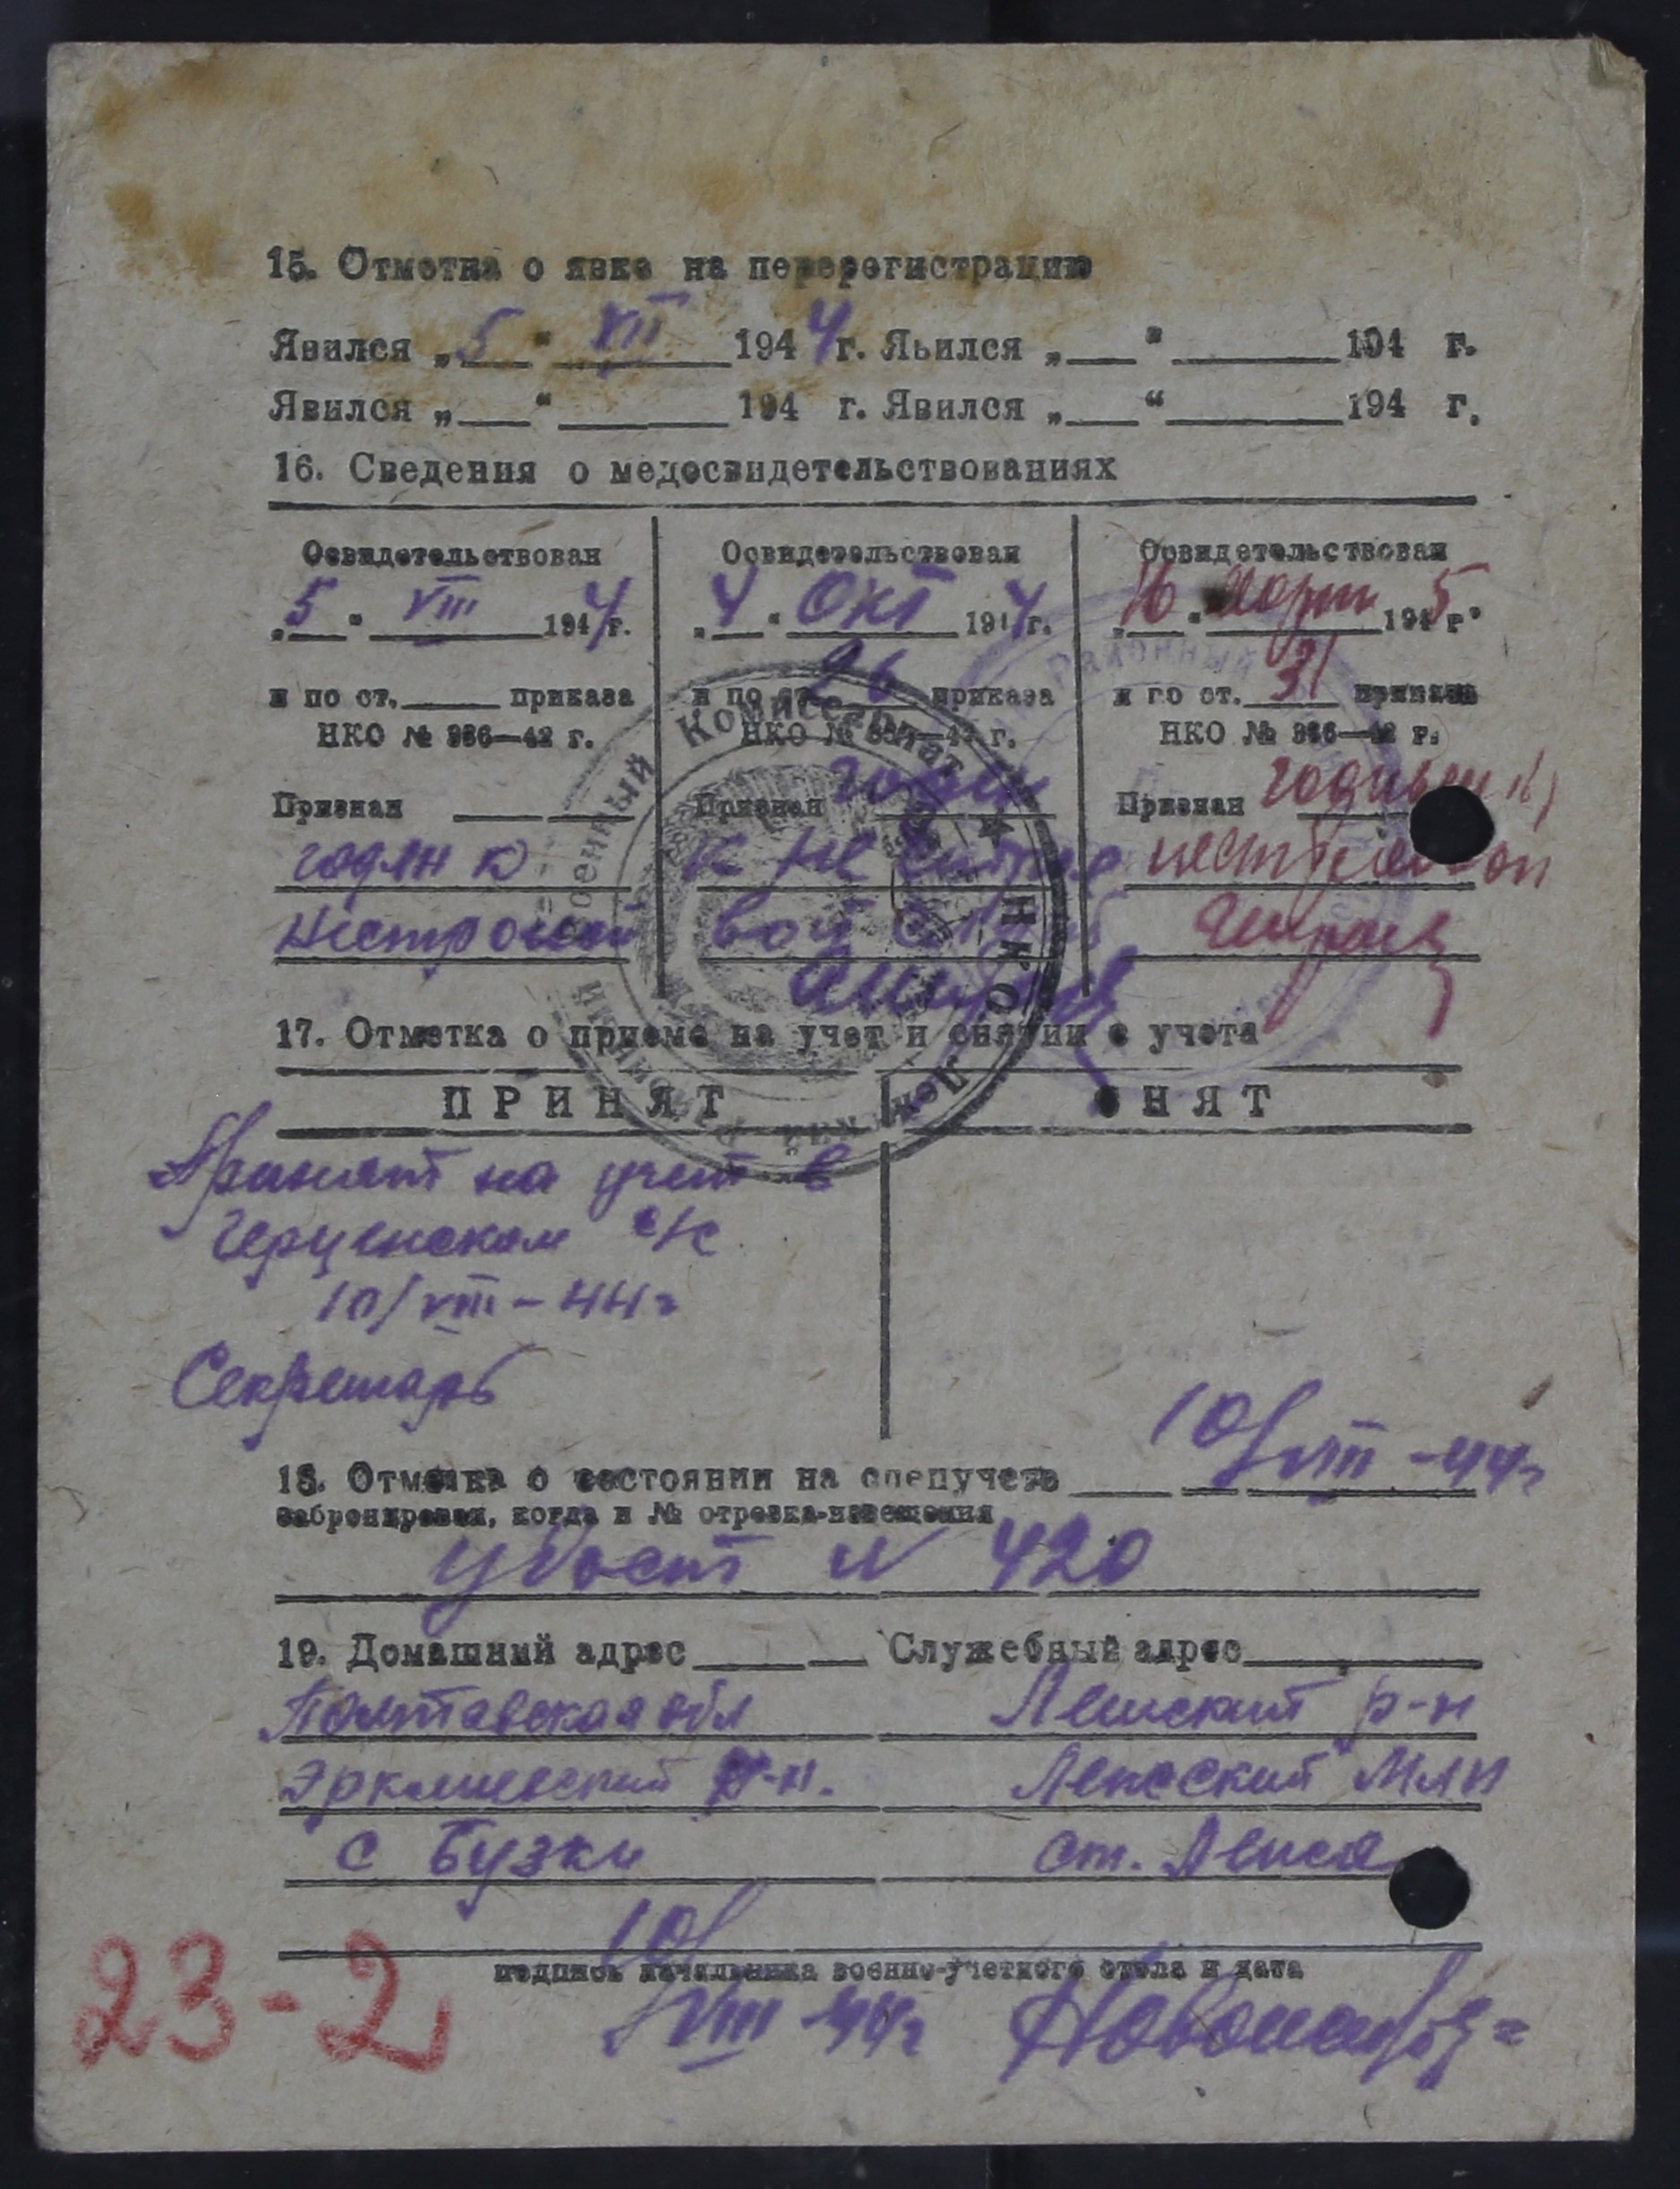 15. Отметка о явке на перерегистрацию
Явился „5“ VII 1944 г. Явился „___“ ______ 194 г.
Явился „___“ ______ 194 г. Явился „___“ ______ 194 г.
16. Сведения о медосвидетельствованиях
Освидетельствован
„5“ VIII 1944 г.
и по ст. ____ приказа
НКО № 336—42 г.
Признан
годен к
нестроевой
Освидетельствован
„4“ Окт 1944 г.
и по ст. 26 приказа
НКО № 336—42 г.
Признан годен
к не строе
вой служб
Освидетельствован
„16“ Марта 1945 г.
и по ст. 31 приказа
НКО № 336—42 г.
Признан годным к
нестроевой
Военный Комиссариат ★ НКО
Районный
17. Отметка о приеме на учет и снятии с учета
ПРИНЯТ СНЯТ
Принят на учет в
с/с
10/VIII-44 г
Секретарь
18. Отметка о состоянии на спецучете 10/VIII-44 г
забронирован, когда и № отрезка-извещения
Удост N 420
19. Домашний адрес ____ Служебный адрес ____
Полтавская обл Ленский р-н
р-н. Ленский
с Бузки ст. Ленса
10/
подпись начальника военно-учетного стола и дата
VIII-44 г
23-2